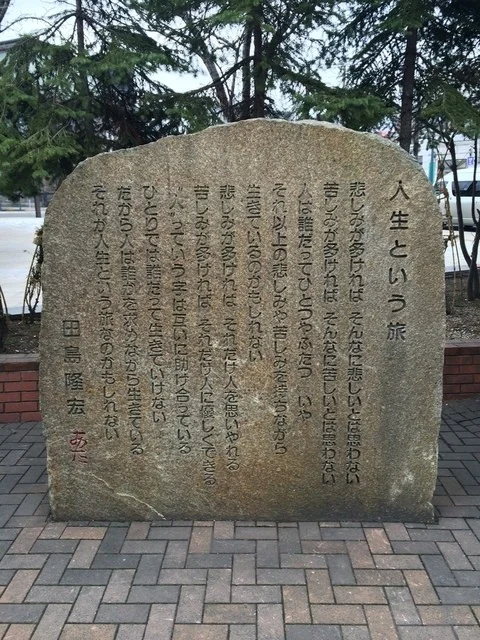 人生という旅
悲しみが多ければ そんなに悲しいとは思わない
苦しみが多ければ そんなに苦しいとは思わない
人は誰だってひとつやふたつ いや
それ以上の悲しみや苦しみを持ちながら
生きているのかもしれない
悲しみが多ければ それだけ人を思いやれる
苦しみが多ければ それだけ人に優しくできる
っていう字は互いに助け合っている
ひとりでは誰だって生きていけない
だから人は誰かを求めながら生きている
それが人生という旅なのかもしれない
田島隆宏